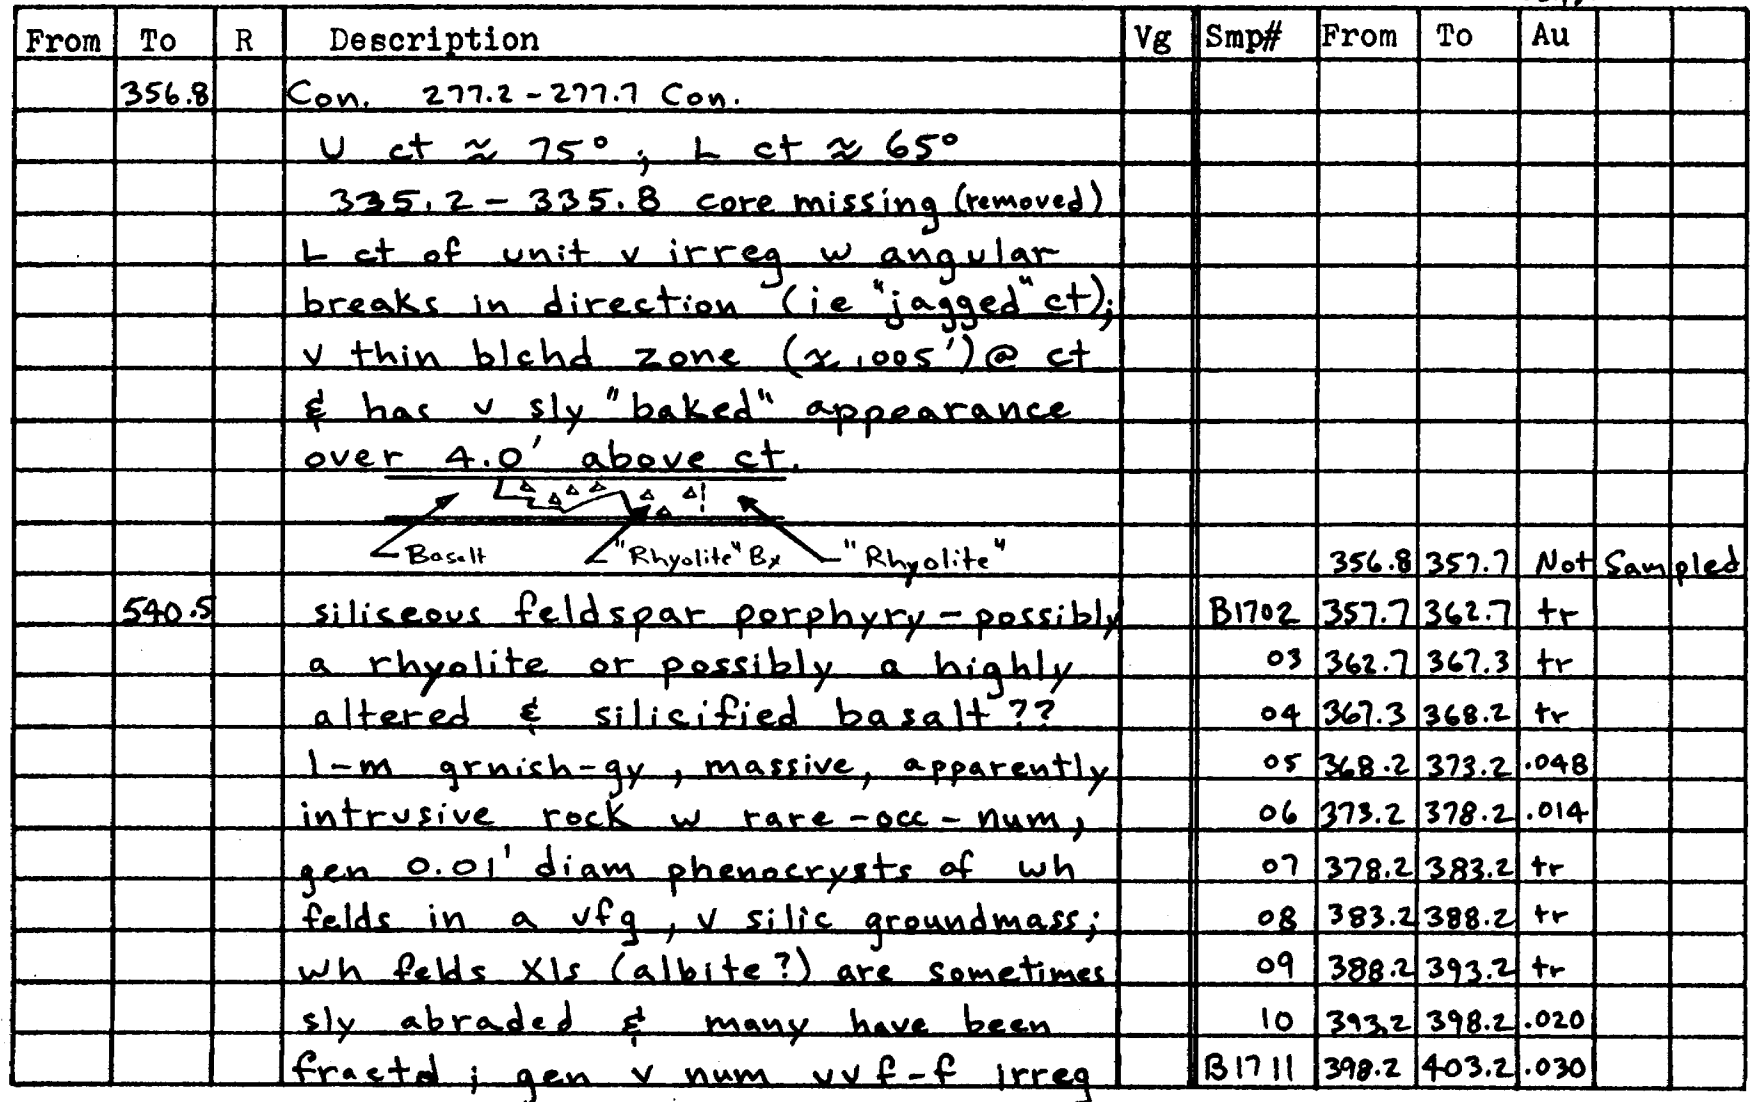 From To R Description Vg Smp# From To Au
356.8 Con. 277.2-277.7 Con.
U ct ≈ 75°; L ct ≈ 65°
335.2-335.8 core missing (removed)
L ct of unit v irreg w angular
breaks in direction (ie "jagged" ct);
v thin blchd zone (≈.005')@ ct
& has v sly "baked" appearance
over 4.0' above ct.
Basalt "Rhyolite" Bx "Rhyolite" 356.8 357.7 Not Sampled
540.5 siliseous feldspar porphyry - possibly B1702 357.7 362.7 tr
a rhyolite or possibly a highly 03 362.7 367.3 tr
altered & silicified basalt?? 04 367.3 368.2 tr
l-m grnish-gy, massive, apparently 05 368.2 373.2 .048
intrusive rock w rare-occ-num, 06 373.2 378.2 .014
gen 0.01' diam phenocrysts of wh 07 378.2 383.2 tr
felds in a vfg, v silic groundmass; 08 383.2 388.2 tr
wh felds Xls (albite?) are sometimes 09 388.2 393.2 tr
sly abraded & many have been 10 393.2 398.2 .020
fractd; gen v num vvf-f irreg B1711 398.2 403.2 .030